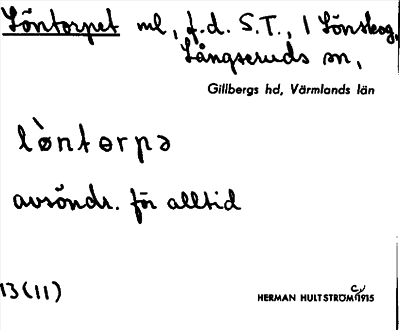 Löntorpet ml, f.d. S.T., 1 Lönskog,
Långseruds sn,
Gillbergs hd, Värmlands län
lòntorpə
avsöndr. för alltid
13(11)
HERMAN HULTSTRÖM 1915